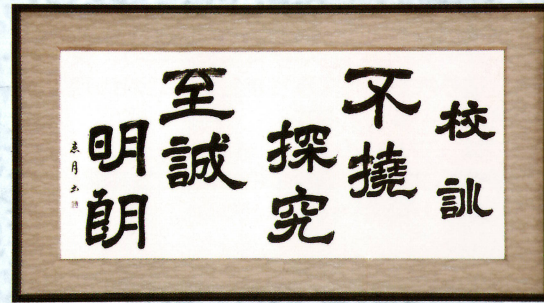 校訓
不撓
探究
至誠
明朗